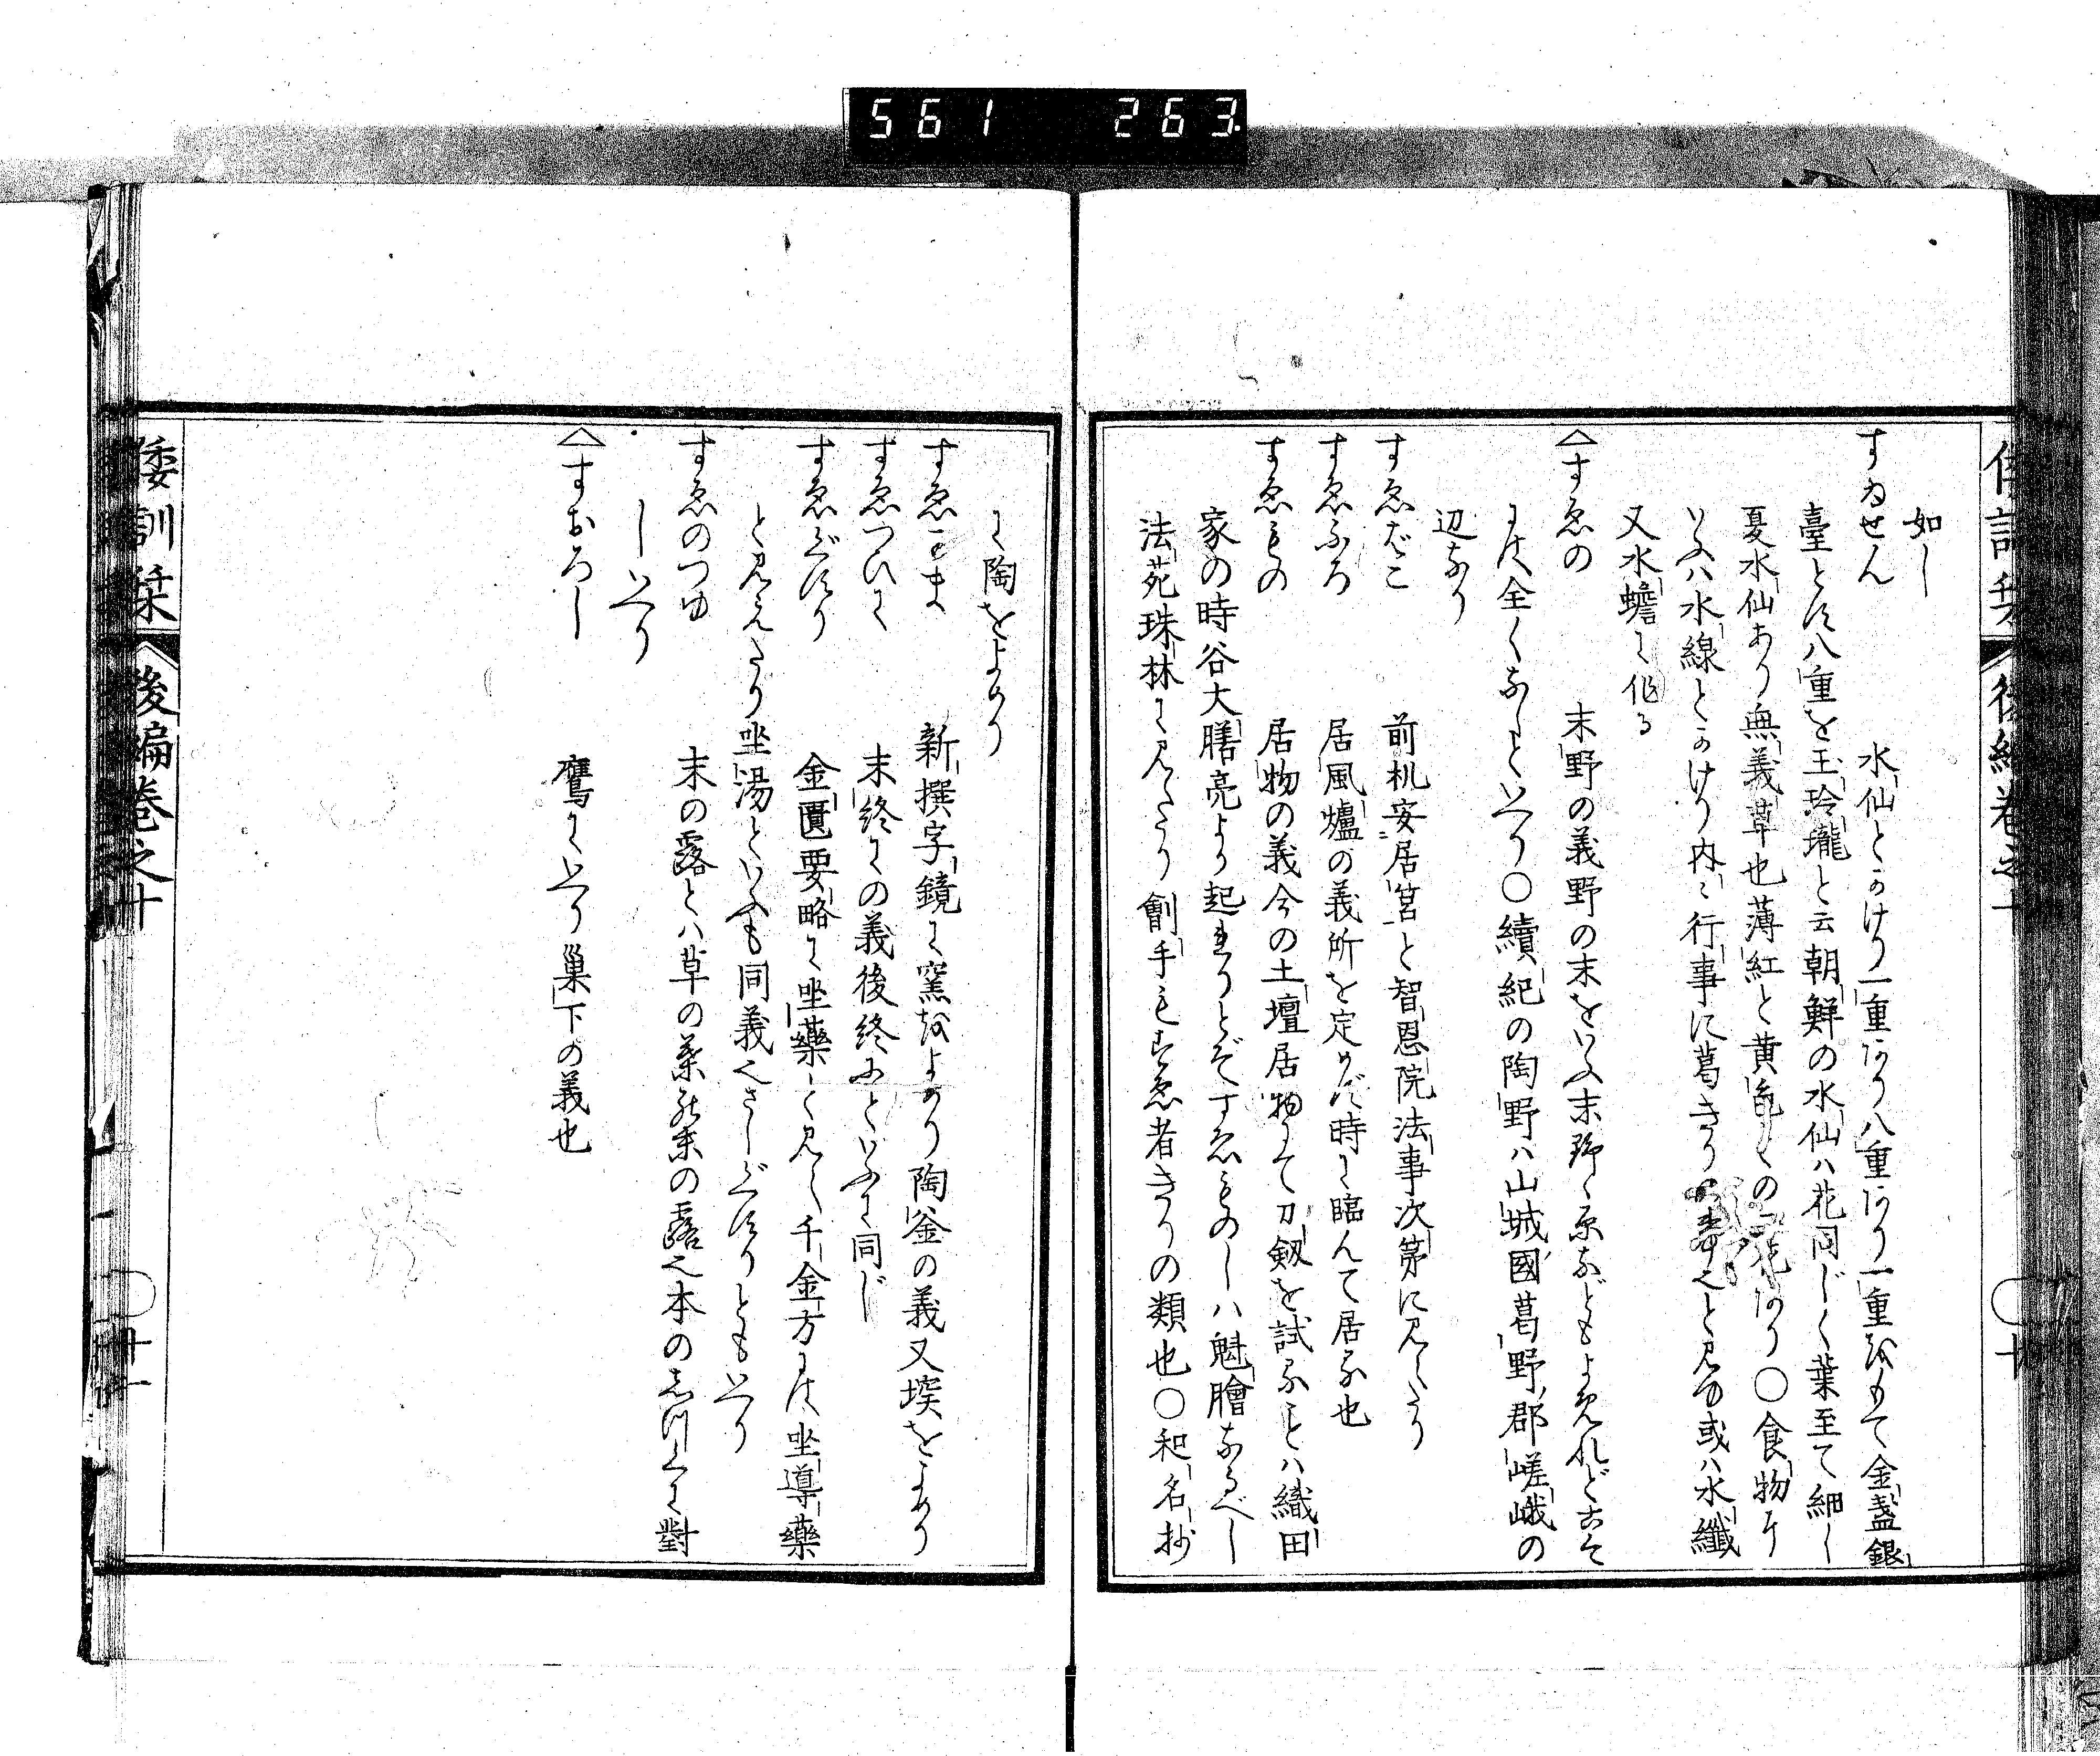 561 263.
如し
すゐせん 水仙とかけり一重あり八重あり一重をもて金盞銀
臺とし八重を玉玲瓏と云朝鮮の水仙ハ花同じく葉至て細し
夏水仙あり無義草也薄紅と黄色との二種あり〇食物に
いふハ水線とかけり内々行事に葛きり 也と見ゆ或ハ水纖
又水蟾に作る
へすゑの 末野の義野の末をいふ末野の原などもよめれどこそ
にハ全くなしといへり〇續紀の陶野ハ山城國葛野郡嵯峨の
辺なり
すゑばこ 前机安居筥と智恩院法事次第に見へたり
すゑふろ 居風爐の義所を定めず時に臨んて居る也
すゑもの 居物の義今の土壇居物にて刀劔を試ることハ織田
家の時谷大膳亮より起れりとぞすゑものしハ魁膾なるべし
法苑珠林に見へたり劊手もすゑ者きりの類也〇和名抄
に陶をよめり
すゑがま 新撰字鏡に窯をよめり陶釜の義又堗をよめり
すゑつひに 末終にの義後終にといふに同じ
すゑぐすり 金匱要略に坐藥と見へ千金方には坐導藥
と見えたり坐湯といふも同義也さしぐすりともいへり
すゑのつゆ 末の露とハ草の葉の末の露也本のしづくに對
しいへり
へすおろし 鷹にいへり巢下の義也
倭訓栞 後編卷之十 卅一